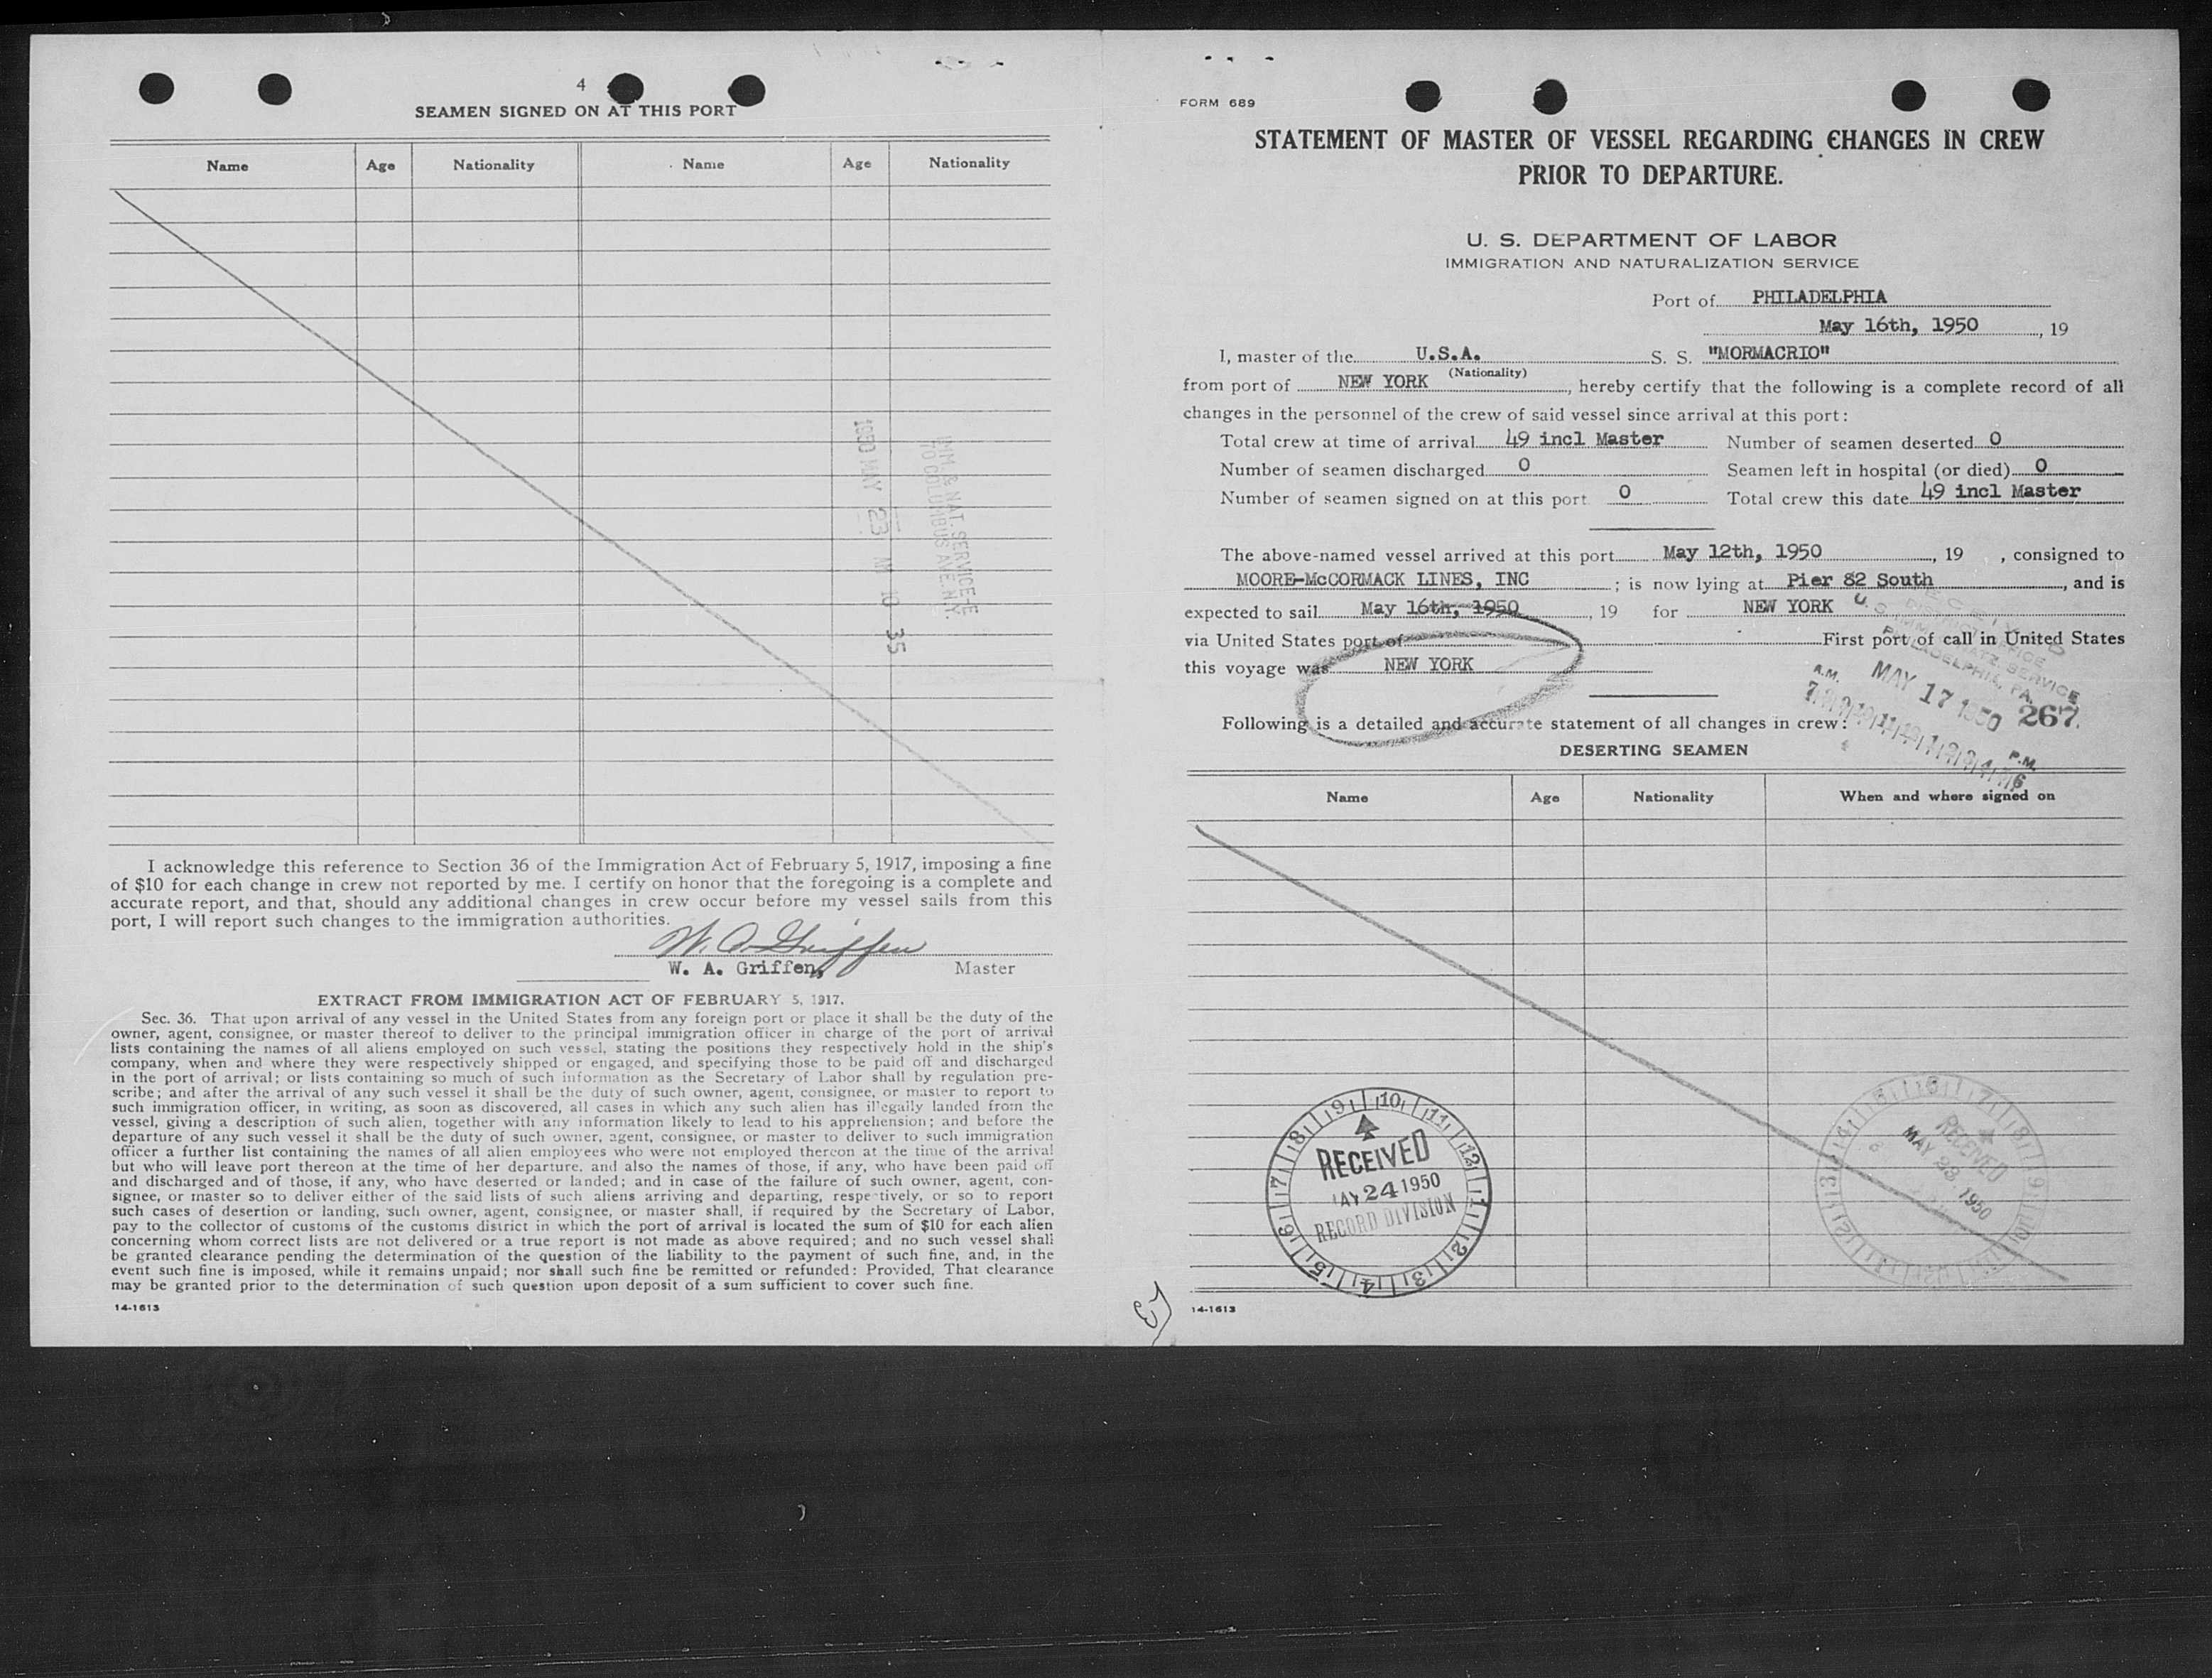 4
SEAMEN SIGNED ON AT THIS PORT
Name Age Nationality Name Age Nationality
IMM. & NAT. SERVICE-E
70 COLUMBUS AVE. N.Y.
1950 MAY 23 AM 10 35
I acknowledge this reference to Section 36 of the Immigration Act of February 5, 1917, imposing a fine
of $10 for each change in crew not reported by me. I certify on honor that the foregoing is a complete and
accurate report, and that, should any additional changes in crew occur before my vessel sails from this
port, I will report such changes to the immigration authorities.
W. A. Griffen
W. A. Griffen, Master
EXTRACT FROM IMMIGRATION ACT OF FEBRUARY 5, 1917.
Sec. 36. That upon arrival of any vessel in the United States from any foreign port or place it shall be the duty of the
owner, agent, consignee, or master thereof to deliver to the principal immigration officer in charge of the port of arrival
lists containing the names of all aliens employed on such vessel, stating the positions they respectively hold in the ship's
company, when and where they were respectively shipped or engaged, and specifying those to be paid off and discharged
in the port of arrival; or lists containing so much of such information as the Secretary of Labor shall by regulation pre-
scribe; and after the arrival of any such vessel it shall be the duty of such owner, agent, consignee, or master to report to
such immigration officer, in writing, as soon as discovered, all cases in which any such alien has illegally landed from the
vessel, giving a description of such alien, together with any information likely to lead to his apprehension; and before the
departure of any such vessel it shall be the duty of such owner, agent, consignee, or master to deliver to such immigration
officer a further list containing the names of all alien employees who were not employed thereon at the time of the arrival
but who will leave port thereon at the time of her departure, and also the names of those, if any, who have been paid off
and discharged and of those, if any, who have deserted or landed; and in case of the failure of such owner, agent, con-
signee, or master so to deliver either of the said lists of such aliens arriving and departing, respectively, or so to report
such cases of desertion or landing, such owner, agent, consignee, or master shall, if required by the Secretary of Labor,
pay to the collector of customs of the customs district in which the port of arrival is located the sum of $10 for each alien
concerning whom correct lists are not delivered or a true report is not made as above required; and no such vessel shall
be granted clearance pending the determination of the question of the liability to the payment of such fine, and, in the
event such fine is imposed, while it remains unpaid; nor shall such fine be remitted or refunded: Provided, That clearance
may be granted prior to the determination of such question upon deposit of a sum sufficient to cover such fine.
14-1613
FORM 689
STATEMENT OF MASTER OF VESSEL REGARDING CHANGES IN CREW
PRIOR TO DEPARTURE.
U. S. DEPARTMENT OF LABOR
IMMIGRATION AND NATURALIZATION SERVICE
Port of PHILADELPHIA
May 16th, 1950, 19
I, master of the U.S.A. S. S. "MORMACRIO"
(Nationality)
from port of NEW YORK, hereby certify that the following is a complete record of all
changes in the personnel of the crew of said vessel since arrival at this port:
Total crew at time of arrival 49 incl Master Number of seamen deserted 0
Number of seamen discharged 0 Seamen left in hospital (or died) 0
Number of seamen signed on at this port 0 Total crew this date 49 incl Master
The above-named vessel arrived at this port May 12th, 1950, 19 , consigned to
MOORE-McCORMACK LINES, INC ; is now lying at Pier 82 South, and is
expected to sail May 16th, 1950, 19 for NEW YORK
via United States port of First port of call in United States
this voyage was NEW YORK
RECEIVED
U. S. DISTRICT OFFICE
IMMIG. NATZ. SERVICE
PHILADELPHIA, PA.
A.M. MAY 17 1950 267
P.M.
Following is a detailed and accurate statement of all changes in crew:
DESERTING SEAMEN
Name Age Nationality When and where signed on
RECEIVED
MAY 24 1950
RECORD DIVISION
RECEIVED
MAY 23 1950
14-1613